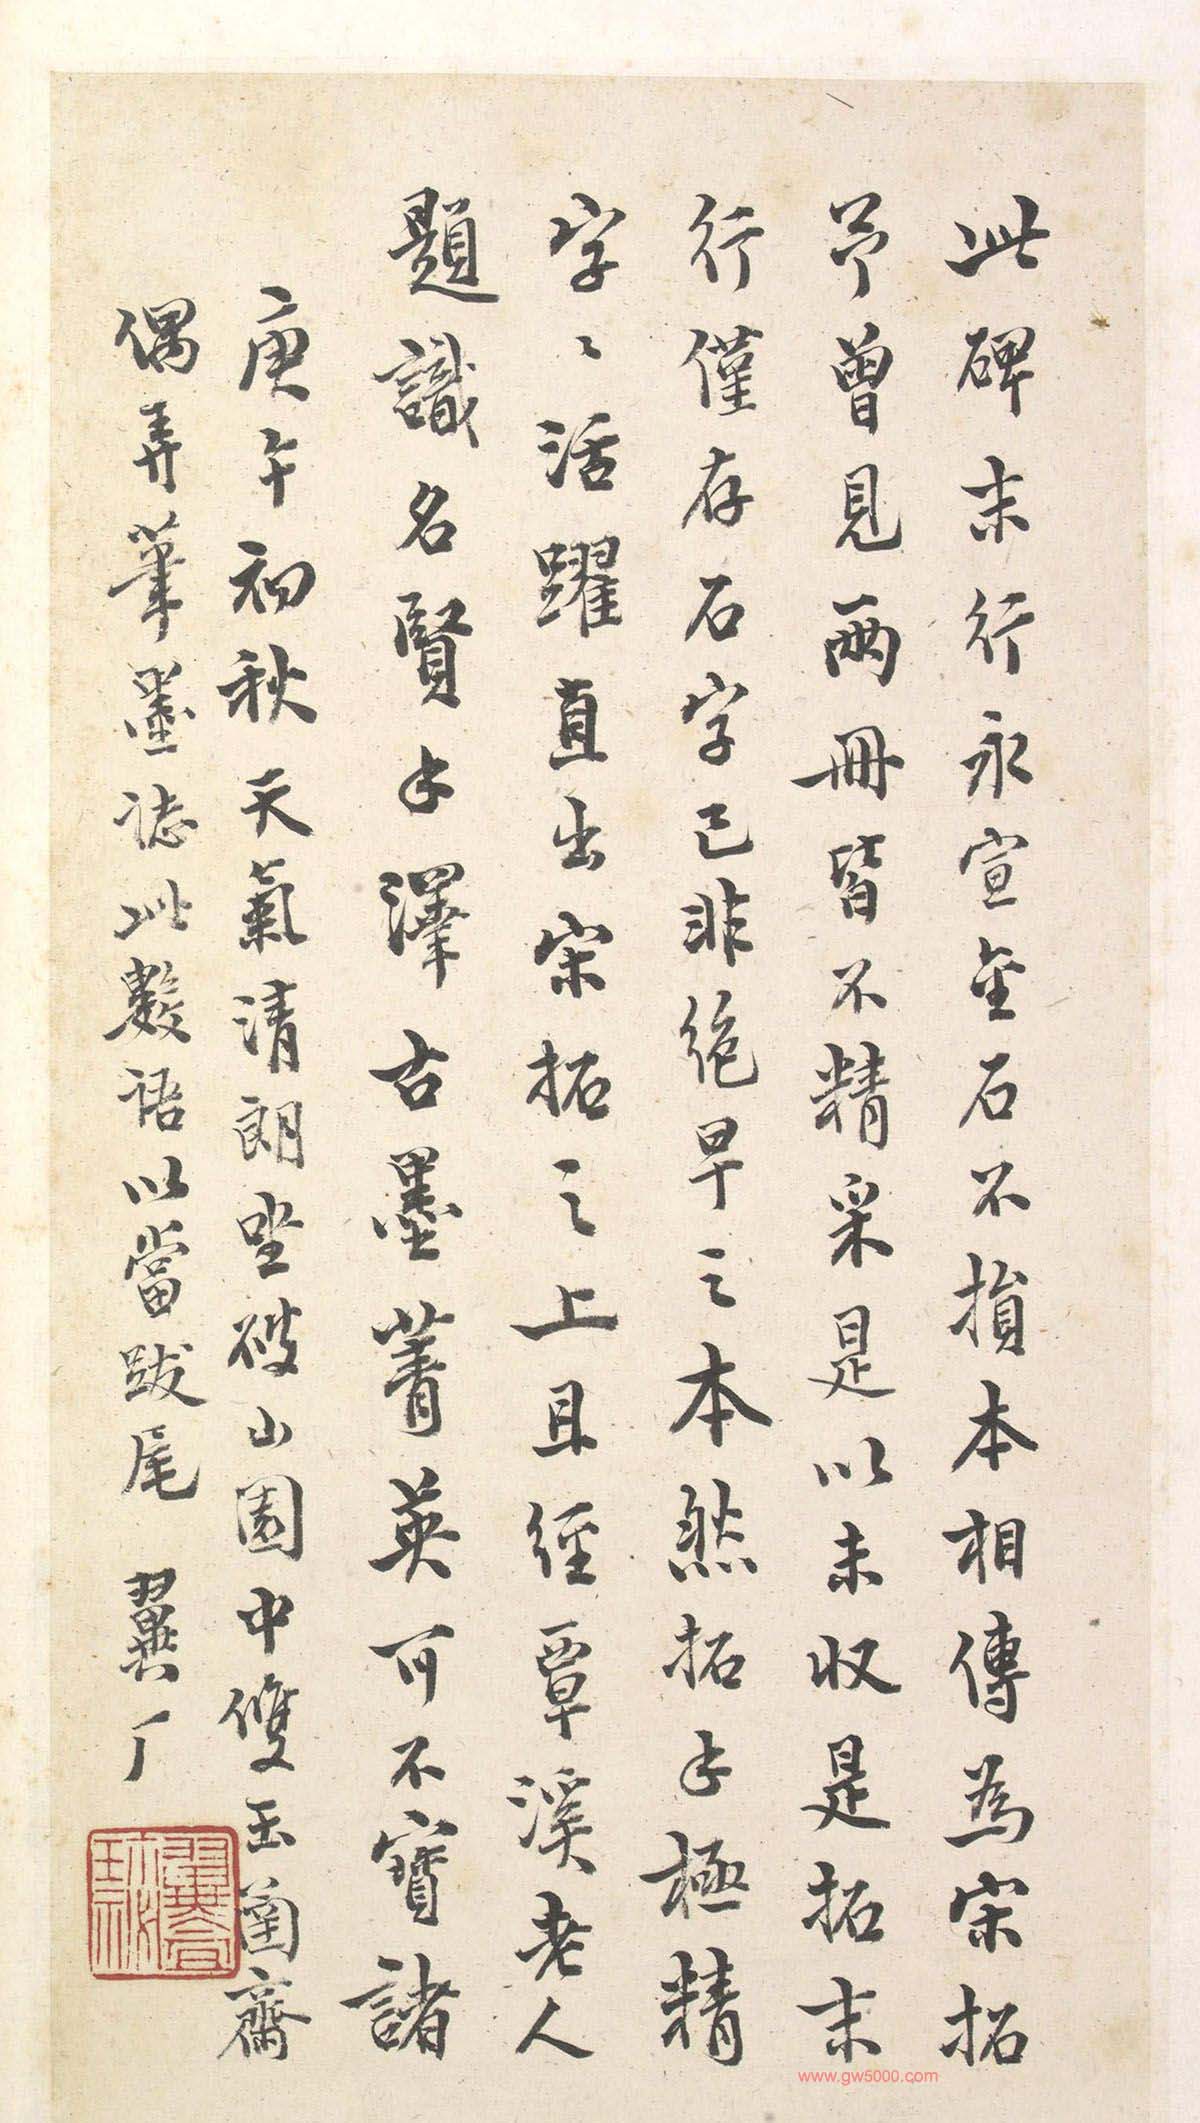 此碑末行永宣金石不損本相傳為宋拓
予曾見兩冊皆不精采是以未收是拓末
行僅存石字已非絕早之本然拓手極精
字〻活躍直出宋拓之上且經覃溪老人
題識名賢手澤古墨菁英可不寶諸
庚午初秋天氣清朗坐破山園中雙玉蘭齋
偶弄筆墨誌此數語以當跋尾 翼厂
www.gw5000.com